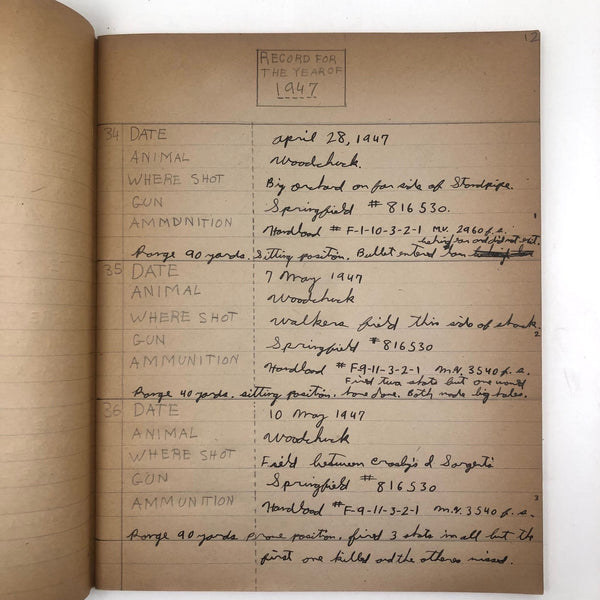 12
RECORD FOR
THE YEAR OF
1947
34 DATE April 28, 1947
ANIMAL Woodchuck.
WHERE SHOT Big orchard on far side of Standpipe.
GUN Springfield # 816530.
AMMUNITION Handload # F-1-10-3-2-1 M.V. 2960 f.s. 1
and did not exit.
Range 90 yards. Sitting position. Bullet entered
35 DATE 7 May 1947
ANIMAL Woodchuck
WHERE SHOT Walkers field this side of shack.
GUN Springfield # 816530 2
AMMUNITION Handload # F-9-11-3-2-1 M.V. 3540 f.s.
Fired two shots but one would
Range 40 yards. sitting position. have done. Both made big holes.
36 DATE 10 May 1947
ANIMAL Woodchuck
WHERE SHOT Field between Crosby's & Sargent's
GUN Springfield # 816530
AMMUNITION Handload # F-9-11-3-2-1 M.V. 3540 f.s. 3
Range 90 yards prone position, fired 3 shots in all but the
first one killed and the others missed.